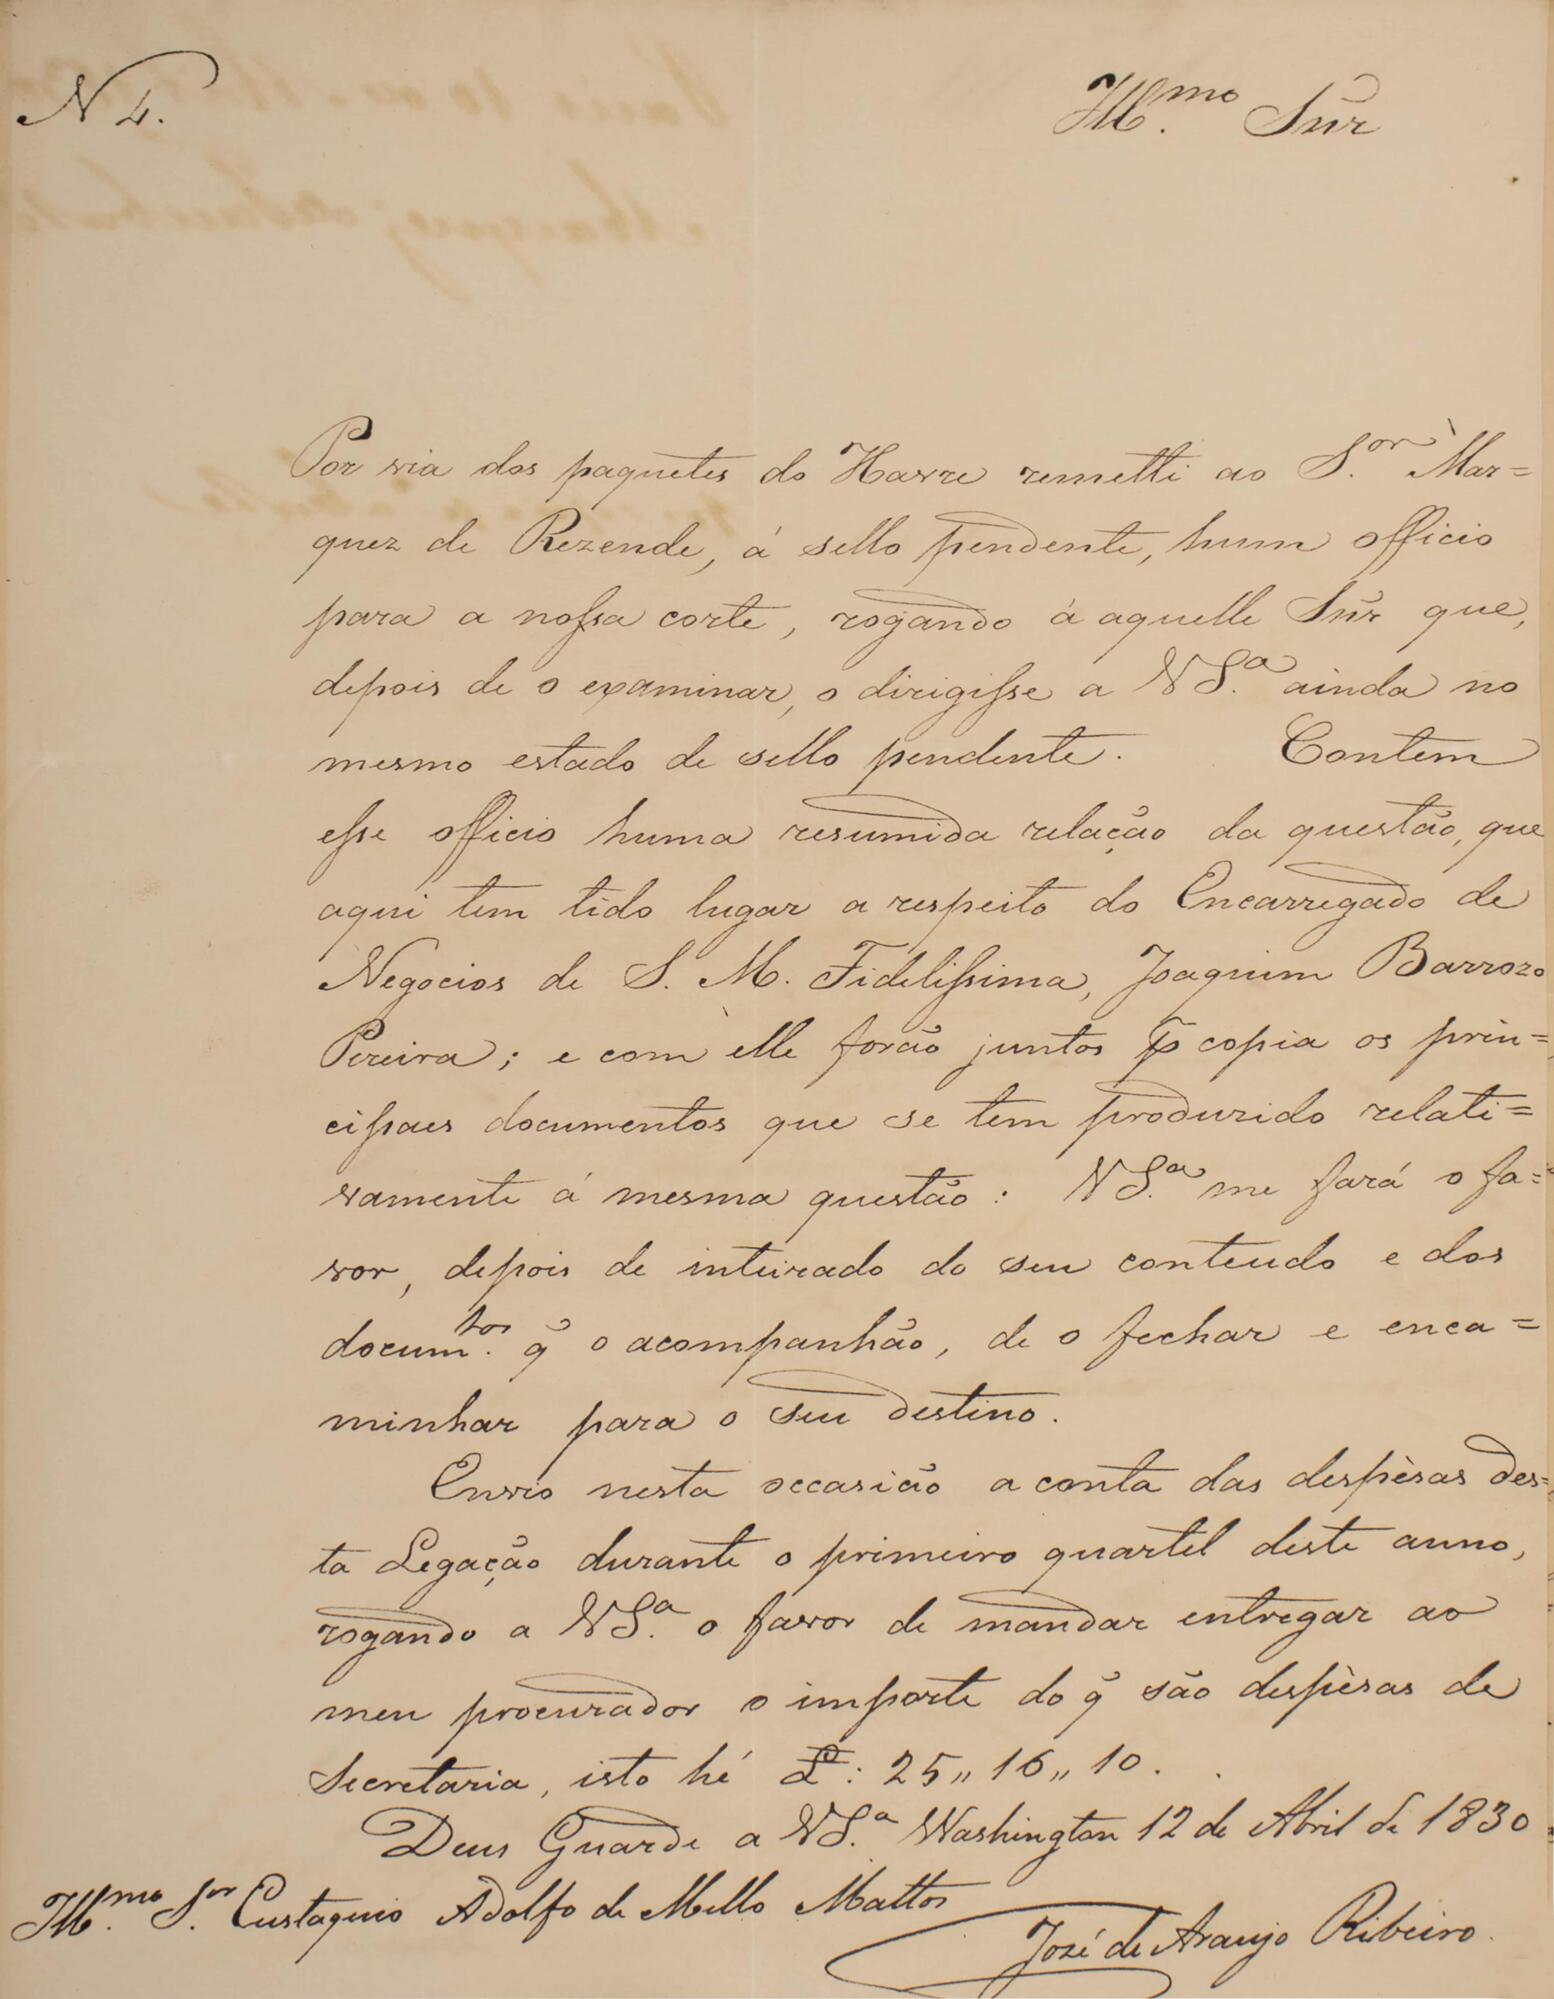 N 4.
Ill.mo Snr
Por via dos paquetes do Havre remetti ao S.or Mar=
quez de Rezende, á sello pendente, hum officio
para a nossa corte, rogando á aquelle Snr que,
depois de o examinar, o dirigisse a VS.a ainda no
mesmo estado de sello pendente. Contem
esse officio huma resumida relação da questão, que
aqui tem tido lugar a respeito do Encarregado de
Negocios de S. M. Fidelissima, Joaquim Barrozo
Pereira; e com elle forão juntos p copia os prin=
cipaes documentos que se tem produzido relati=
vamente á mesma questão: VS.a me fará o fa=
vor, depois de inteirado do seu conteudo e dos
docum.tos q̃ o acompanhão, de o fechar e enca=
minhar para o seu destino.
Envio nesta occasião a conta das despèsas des=
ta Legação durante o primeiro quartel deste anno,
rogando a VS.a o favor de mandar entregar ao
meu procurador o importe do q̃ são despèsas de
Secretaria, isto hé £: 25,, 16,, 10.
Deus Guarde a VS.a Washington 12 de Abril de 1830
Ill.mo S.or Eustaquio Adolfo de Mello Mattos
José de Araujo Ribeiro.